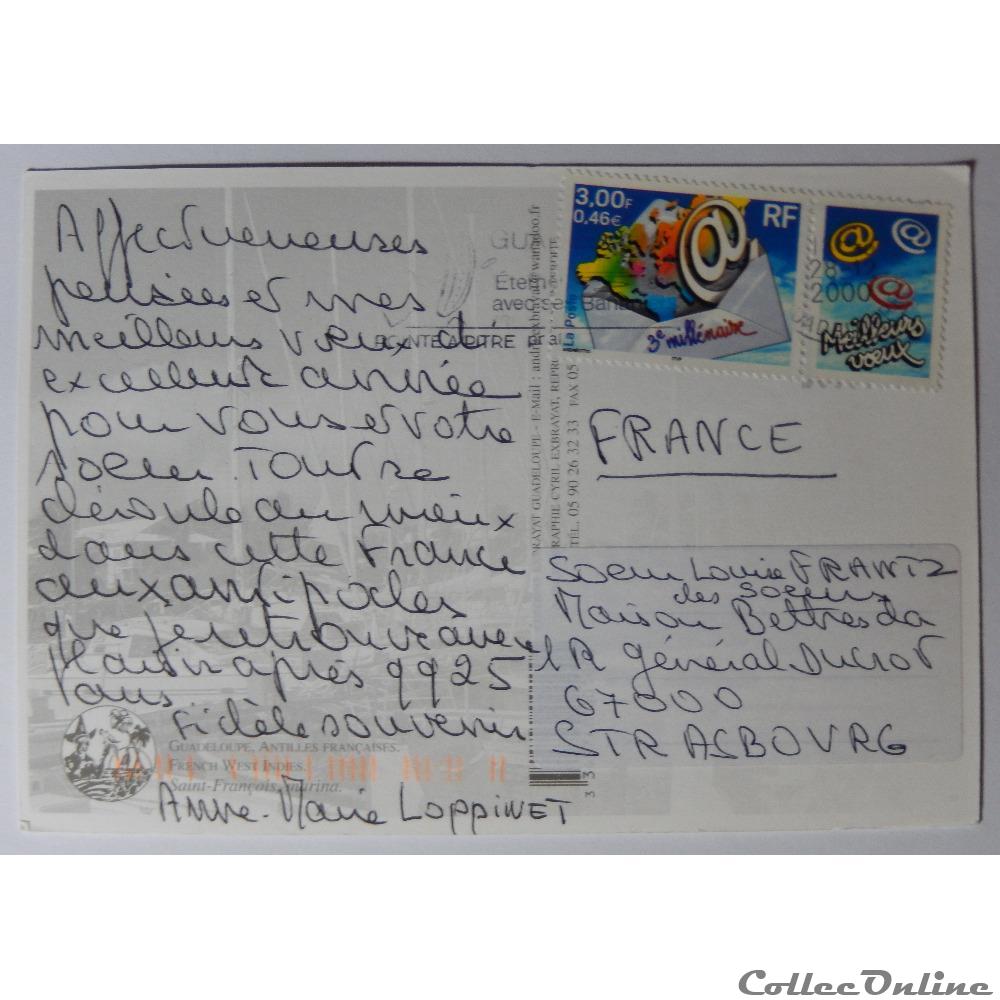 Affectueuses
pensées et mes
meilleurs vœux d'
excellente année
pour vous et votre
soeur. Tout se
déroule au mieux
dans cette France
aux antipodes
que je retrouve avec
plaisir après 25
ans
Fidèle souvenir
Anne-Marie LOPPINET
GUADELOUPE, ANTILLES FRANÇAISES.
FRENCH WEST INDIES.
Saint-François, marina.
GUA
Étern
avec ses
POINTE A PITRE
BRAYAT GUADELOUPE - E-Mail : wanadoo.fr
RAPHIE CYRIL EXBRAYAT, REPRO
TÉL. 05 90 26 32 33 FAX 05
3,00F
0,46€
RF
La Poste
@
3e millénaire
@
@
@
Meilleurs
vœux
28
2000
FRANCE
Soeur Louise FRANTZ
des Soeurs
Maison Bethesda
1 R général Ducrot
67000
STRASBOURG
3 3
CollecOnline